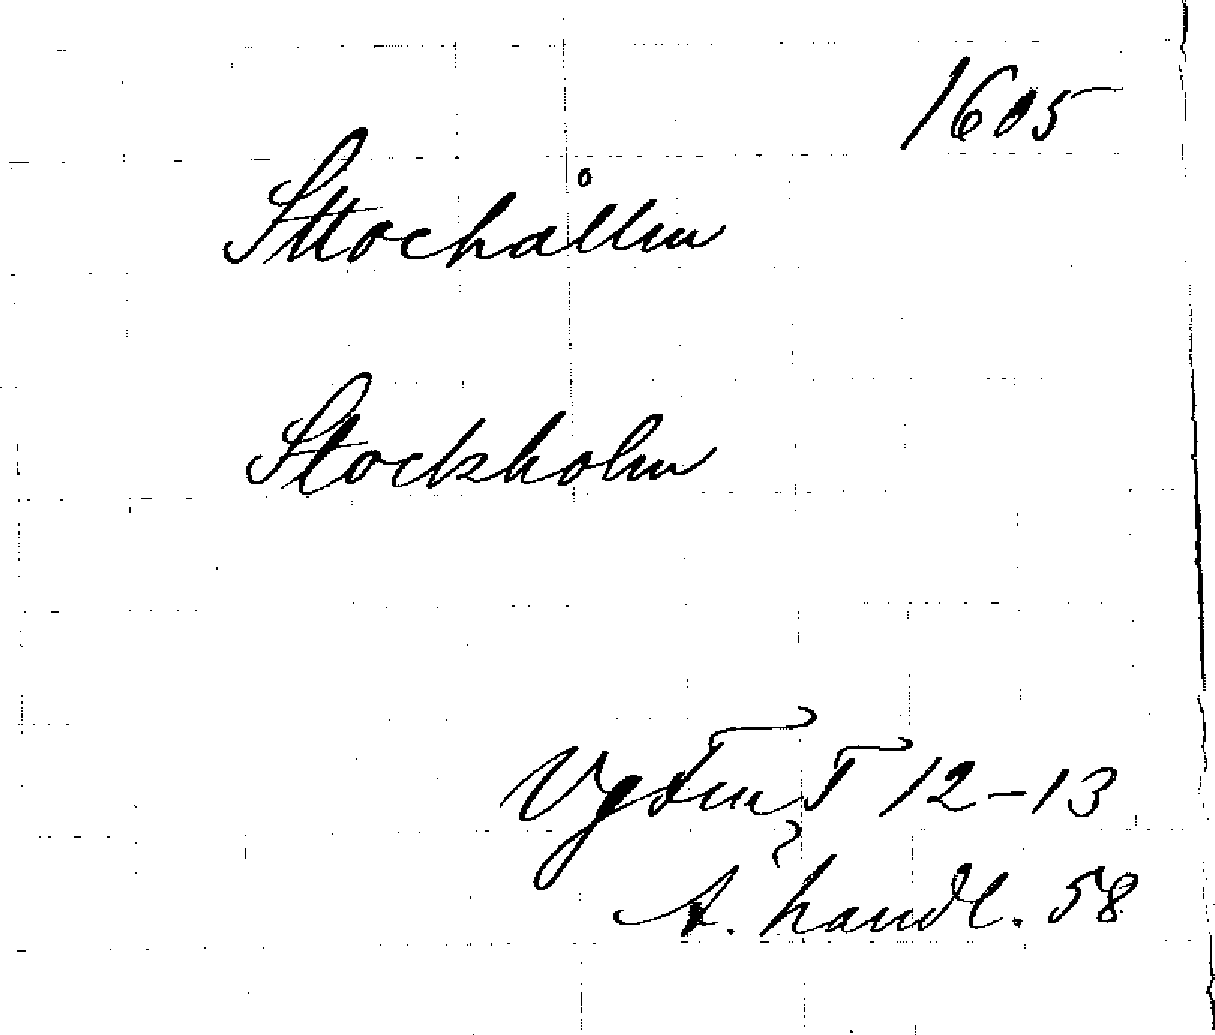 1605
Sttochållm
Stockholm
12-13
A. handl. 58